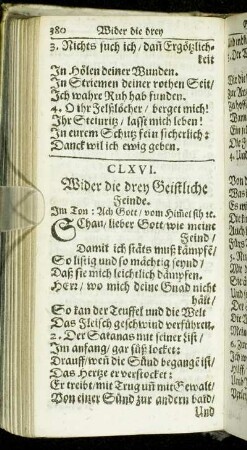 380 Wider die drey
3. Nichts such ich / dañ Ergötzlich-
keit
In Hölen deiner Wunden.
In Striemen deiner rothen Seit /
Ich wahre Ruh hab funden.
4. O ihr Felßlöcher / berget mich!
Ihr Steinritz / lasse mich leben!
In eurem Schutz sein sicherlich:
Danck wil ich ewig geben.
CLXVI.
Wider die drey Geistliche
Feinde.
Im Ton: Ach Gott / vom Him̃el sih ꝛc.
SChau / lieber Gott / wie meine
Feind /
Damit ich stäts muß kämpfẽ /
So listig und so mächtig seynd /
Daß sie mich leichtlich dämpfen.
HErr / wo mich deine Gnad nicht
hält /
So kan der Teuffel und die Welt
Das Fleisch geschwind verführen.
2. Der Satanas mit seiner List /
Im anfang / gar süß locket:
Drauff / weñ die Sünd begangẽ ist /
Das Hertze er verstocket:
Er treibt / mit Trug uñ mit Gewalt /
Von einer Sünd zur andern bald /
Und